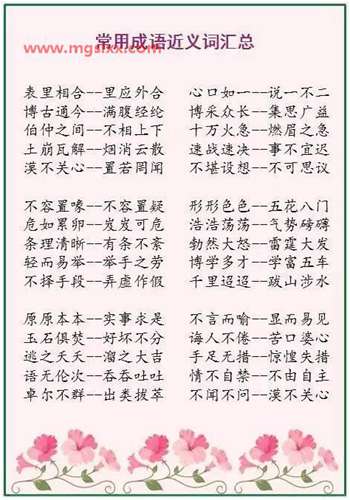 常用成语近义词汇总
www.mgslxx.com
表里相合--里应外合 心口如一--说一不二
博古通今--满腹经纶 博采众长--集思广益
伯仲之间--不相上下 十万火急--燃眉之急
土崩瓦解--烟消云散 速战速决--事不宜迟
漠不关心--置若罔闻 不堪设想--不可思议
不容置喙--不容置疑 形形色色--五花八门
危如累卵--岌岌可危 浩浩荡荡--气势磅礴
条理清晰--有条不紊 勃然大怒--雷霆大发
轻而易举--举手之劳 博学多才--学富五车
不择手段--弄虚作假 千里迢迢--跋山涉水
原原本本--实事求是 不言而喻--显而易见
玉石俱焚--好坏不分 诲人不倦--苦口婆心
逃之夭夭--溜之大吉 手足无措--惊惶失措
语无伦次--吞吞吐吐 情不自禁--不由自主
卓尔不群--出类拔萃 不闻不问--漠不关心